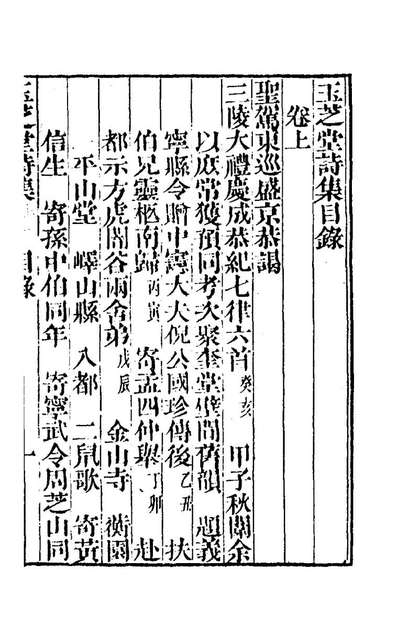 玉芝堂詩集目錄
卷上
聖駕東巡盛京恭謁
三陵大禮慶成恭紀七律六首 癸亥 甲子秋闈余
以庶常獲預同考次聚奎堂壁間舊韻 題義
寧縣令贈中憲大夫倪公國珍傳後 乙丑 扶
伯兄靈柩南歸 丙寅 寄孟四仲舉 丁卯 赴
都示方虎閣谷兩舍弟 戊辰 金山寺 衡園
平山堂 嶧山縣 入都 二鼠歌 寄黃
信生 寄孫中伯同年 寄寧武令周芝山同
玉芝堂詩集 目錄 一